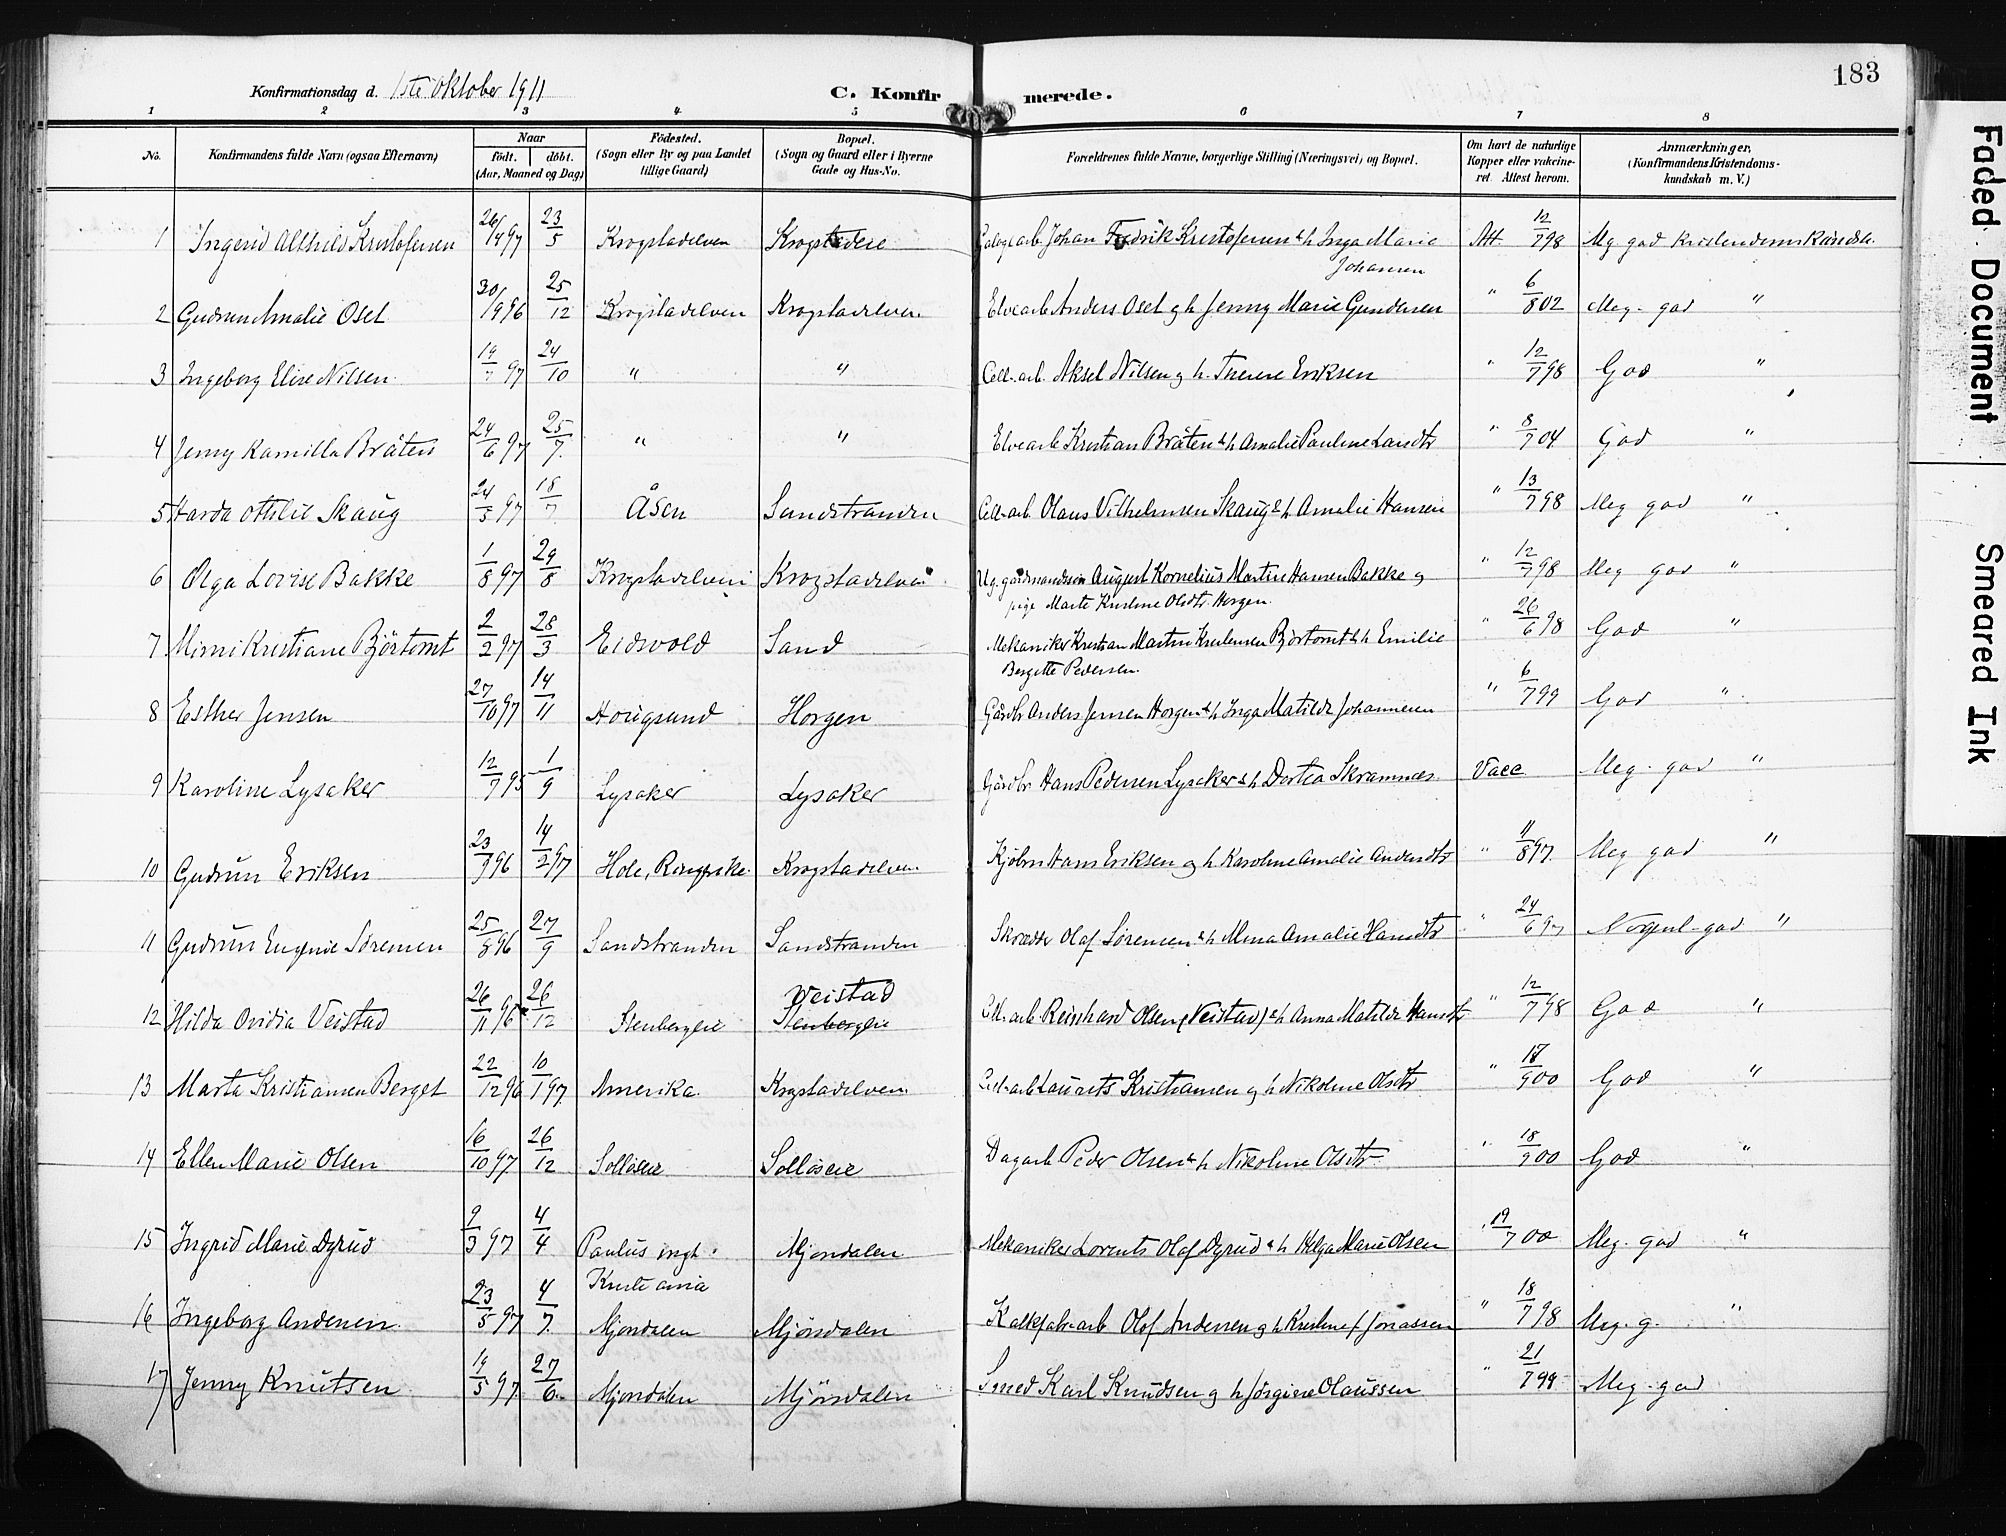 183
Konfirmationsdag d. 1ste Oktober 1911
C. Konfirmerede.
1 2 3 4 5 6 7 8
No. Konfirmandens fulde Navn (ogsaa Efternavn) Naar födt. döbt. (Aar, Maaned og Dag) Födested. (Sogn eller By og paa Landet tillige Gaard) Bopæl. (Sogn og Gaard eller i Byerne Gade og Hus-No. Forældrenes fulde Navne, borgerlige Stilling (Næringsvei) og Bopæl. Om havt de naturlige Kopper eller vakcineret. Attest herom. Anmærkninger, (Konfirmandens Kristendomskundskab m. V.)
1 Ingerid Althild Kristofersen 26/4 97 23/5 Krogstadelven Krogstadeie arb. Johan Fredrik Kristofersen & h. Inga Marie Johansen Att. 12/7 98 Mg god Kristendomskundsk.
2 Gudrun Amalie Oset 30/9 96 25/12 Krogstadelven Krogstadelven Elvearb Anders Oset og h. Jenny Marie Gundersen " 6/8 02 Meg. god "
3 Ingeborg Elise Nilsen 19/7 97 24/10 " " Cell. arb. Aksel Nilsen og h. Therese Eriksen " 12/7 98 God "
4 Jenny Kamilla Bråten 24/6 97 25/7 " " Elvearb Kristian Bråten & h. Amalie Pauline Larsdtr " 8/7 04 God "
5 Harda Ottilie Skaug 24/5 97 18/7 Åsen Sandstranden Cell. arb. Olaus Vilhelmsen Skaug & h. Amalie Hansen " 13/7 98 Meg god "
6 Olga Lovise Bakke 1/8 97 29/8 Krogstadelven Krogstadelven Ug. gårdmandssøn August Kornelius Martin Hansen Bakke og pige Marte Kristine Olsdtr. Horgen. " 12/7 98 Meg god "
7 Mimi Kristiane Björtomt 2/2 97 28/3 Eidsvold Sand Mekaniker Kristian Martin Kristensen Björtomt & h. Emilie Bergitte Pedersen. " 26/6 98 God "
8 Esther Jensen 27/10 97 14/11 Hougsund Horgen Gårdbr Anders Jensen Horgen & h. Inga Matilde Johannesen " 6/7 99 God "
9 Karoline Lysaker 12/7 95 1/9 Lysaker Lysaker Gårdbr Hans Pedersen Lysaker & h. Dortea Skramnes Vacc Meg. god "
10 Gudrun Eriksen 23/9 96 14/2 97 Hole, Ringerike Krogstadelven Kjöbm Hans Eriksen og h. Karoline Amalie Andersdtr " 11/8 97 Meg god "
11 Gudrun Eugenie Sörensen 25/8 96 27/9 Sandstranden Sandstranden Skrædder Olaf Sörensen & h. Mina Amalie Hansdtr " 24/6 97 Nogenl. god "
12 Hilda Ovidia Veistad 26/11 96 26/12 Stenbergeie Veistad Stenbergeie Cell. arb Reinhard Olsen (Veistad) & h. Anna Matilde Hansdtr " 12/7 98 God "
13 Marta Kristiansen Berget 22/12 96 10/1 97 Amerika Krogstadelven Cell. arb Laurits Kristiansen og h. Nikoline Olsdtr " /9 00 God "
14 Ellen Marie Olsen 16/10 97 26/12 Solløseie Solløseie Dagarb Peder Olsen & h. Nikoline Olsdtr " 18/9 00 God "
15 Ingrid Marie Dyrud 9/3 97 4/4 Paulus mgh. Kristiania Mjöndalen Mekaniker Lorents Olaf Dyrud & h. Helga Marie Olsen " 19/7 00 Meg. god "
16 Ingeborg Andersen 23/5 97 4/7 Mjöndalen Mjöndalen Kalkfabr. arb Olof Andersen og h. Kristine f. Jonassen " 18/7 98 Meg. g. "
17 Jenny Knutsen 19/5 97 27/6 Mjöndalen Mjöndalen Smed Karl Knudsen og h. Jörgine Olaussen " 21/7 98 Meg. god
Faded Document
Smeared Ink